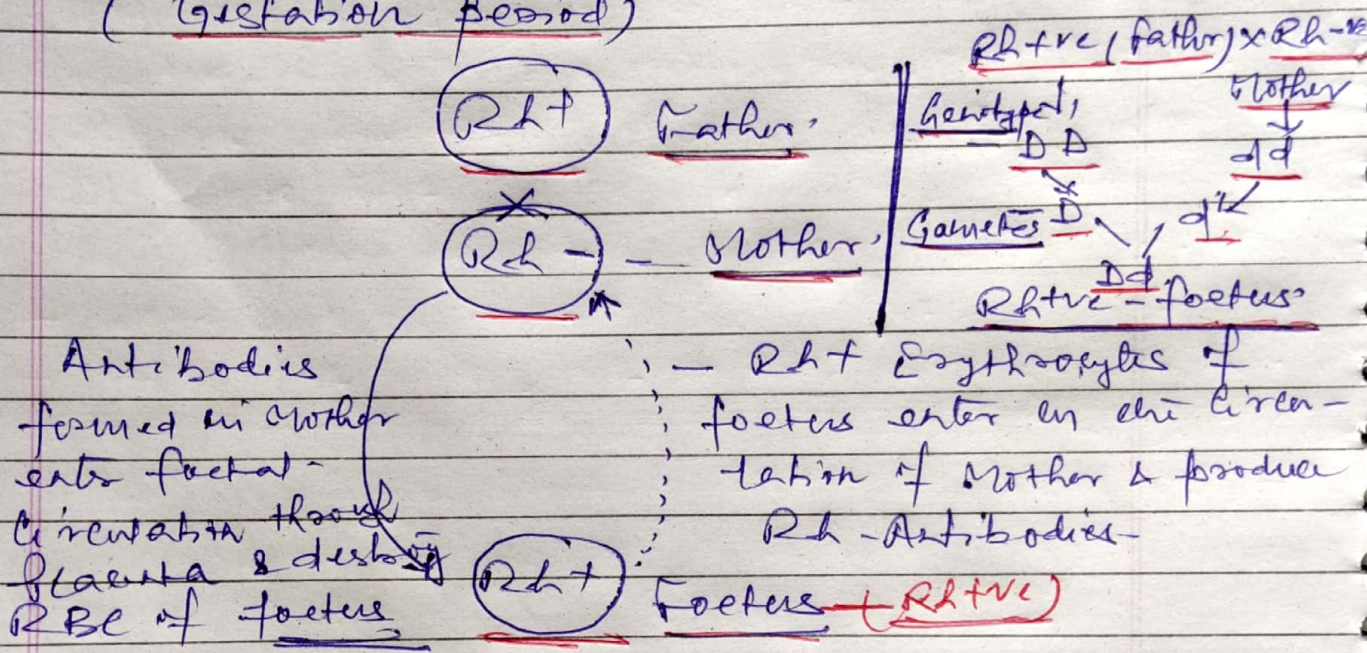 ( Gestation period)
Rh+ Father.
×
Rh- - Mother.
Rh+ve (father) × Rh-ve
Mother
Genotype,
- DD dd
Gametes D d
Dd
Rh+ve - foetus.
Antibodies
formed in Mother
enter foetal-
Circulation through
placenta & destroy
RBC of foetus
- Rh+ Erythrocytes of
foetus enter in the Circu-
lation of Mother & produce
Rh-Antibodies-
Rh+ Foetus - (Rh+ve)